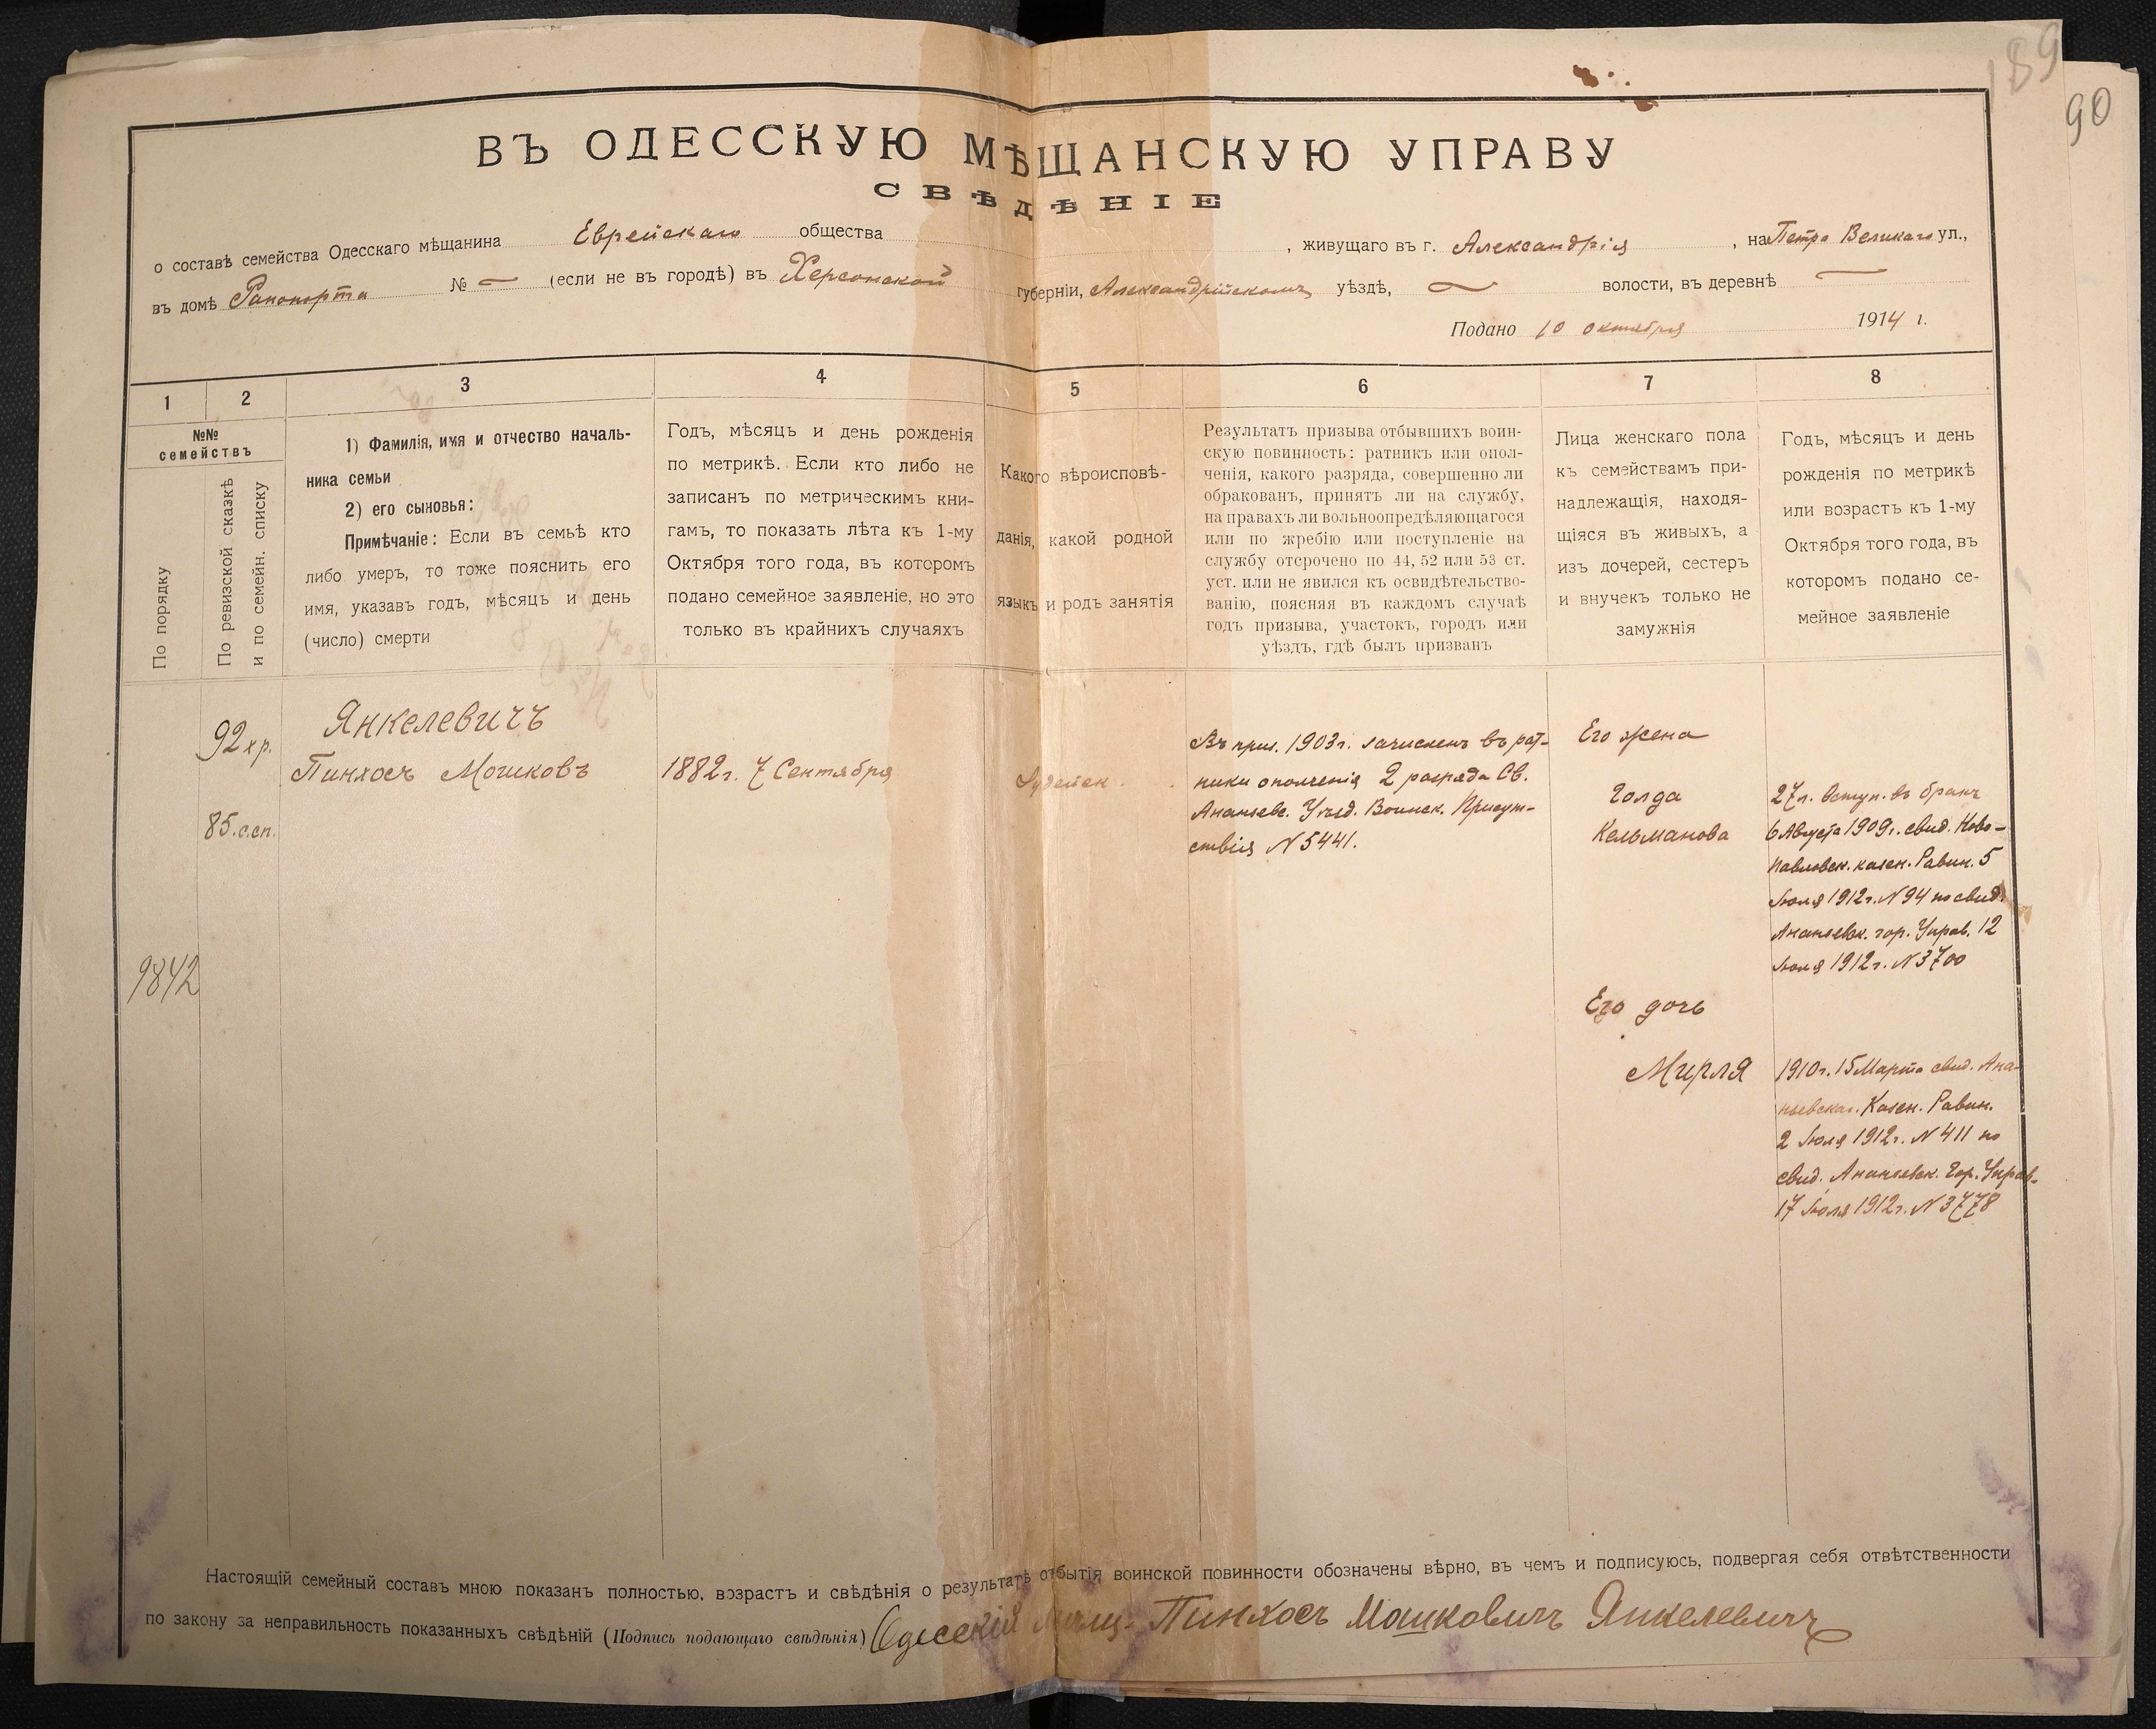 189
90
ВЪ ОДЕССКУЮ МѢЩАНСКУЮ УПРАВУ
СВѢДѢНІЕ
о составѣ семейства Одесскаго мѣщанина Еврейскаго общества , живущаго въ г. Александрія , на Петра Великаго ул.,
въ домѣ Рапопорта № — (если не въ городѣ) въ Херсонской губерніи, Александрійскомъ уѣздѣ, — волости, въ деревнѣ —
Подано 10 октября 1914 г.
1 2 3 4 5 6 7 8
№№ семействъ
По порядку
По ревизской сказкѣ
и по семейн. списку
1) Фамилія, имя и отчество началь-
ника семьи
2) его сыновья:
Примѣчаніе: Если въ семьѣ кто
либо умеръ, то тоже пояснить его
имя, указавъ годъ, мѣсяцъ и день
(число) смерти
Годъ, мѣсяцъ и день рожденія
по метрикѣ. Если кто либо не
записанъ по метрическимъ кни-
гамъ, то показать лѣта къ 1-му
Октября того года, въ которомъ
подано семейное заявленіе, но это
только въ крайнихъ случаяхъ
Какого вѣроисповѣ-
данія, какой родной
языкъ и родъ занятія
Результатъ призыва отбывшихъ воин-
скую повинность: ратникъ или опол-
ченія, какого разряда, совершенно ли
обракованъ, принятъ ли на службу,
на правахъ ли вольноопредѣляющагося
или по жребію или поступленіе на
службу отсрочено по 44, 52 или 53 ст.
уст. или не явился къ освидѣтельство-
ванію, поясняя въ каждомъ случаѣ
годъ призыва, участокъ, городъ или
уѣздъ, гдѣ былъ призванъ
Лица женскаго пола
къ семействамъ при-
надлежащія, находя-
щіяся въ живыхъ, а
изъ дочерей, сестеръ
и внучекъ только не
замужнія
Годъ, мѣсяцъ и день
рожденія по метрикѣ
или возрастъ къ 1-му
Октября того года, въ
которомъ подано се-
мейное заявленіе
9842
92 хр.
85.с.сп.
Янкелевичъ
Пинхосъ Мошковъ
1882 г. 7 Сентября
Іудейск.
Въ приз. 1903 г. зачисленъ въ рат-
ники ополченія 2 разряда Св.
Ананьевс. Уѣзд. Воинск. Присут-
ствія N 5441.
Его жена
Голда
Кельманова
27 л. Вступ. въ бракъ
6 Августа 1909 г. свид. Ново-
павловск. казен. Равин. 5
Іюля 1912 г. N 94 по свид.
Ананьевск. гор. Управ. 12
Іюля 1912 г. N 3700
Его дочь
Мирля
1910 г. 15 Марта свид. Ана-
ньевскаг. Казен. Равин.
2 Іюля 1912 г. N 411 по
свид. Ананьевск. Гор. Управ.
17 Іюля 1912 г. N 3778
Настоящій семейный составъ мною показанъ полностью, возрастъ и свѣдѣнія о результатѣ отбытія воинской повинности обозначены вѣрно, въ чемъ и подписуюсь, подвергая себя отвѣтственности
по закону за неправильность показанныхъ свѣдѣній (Подпись подающаго свѣдѣнія) Одесскій мѣщ. Пинхосъ Мошковичъ Янкелевичъ